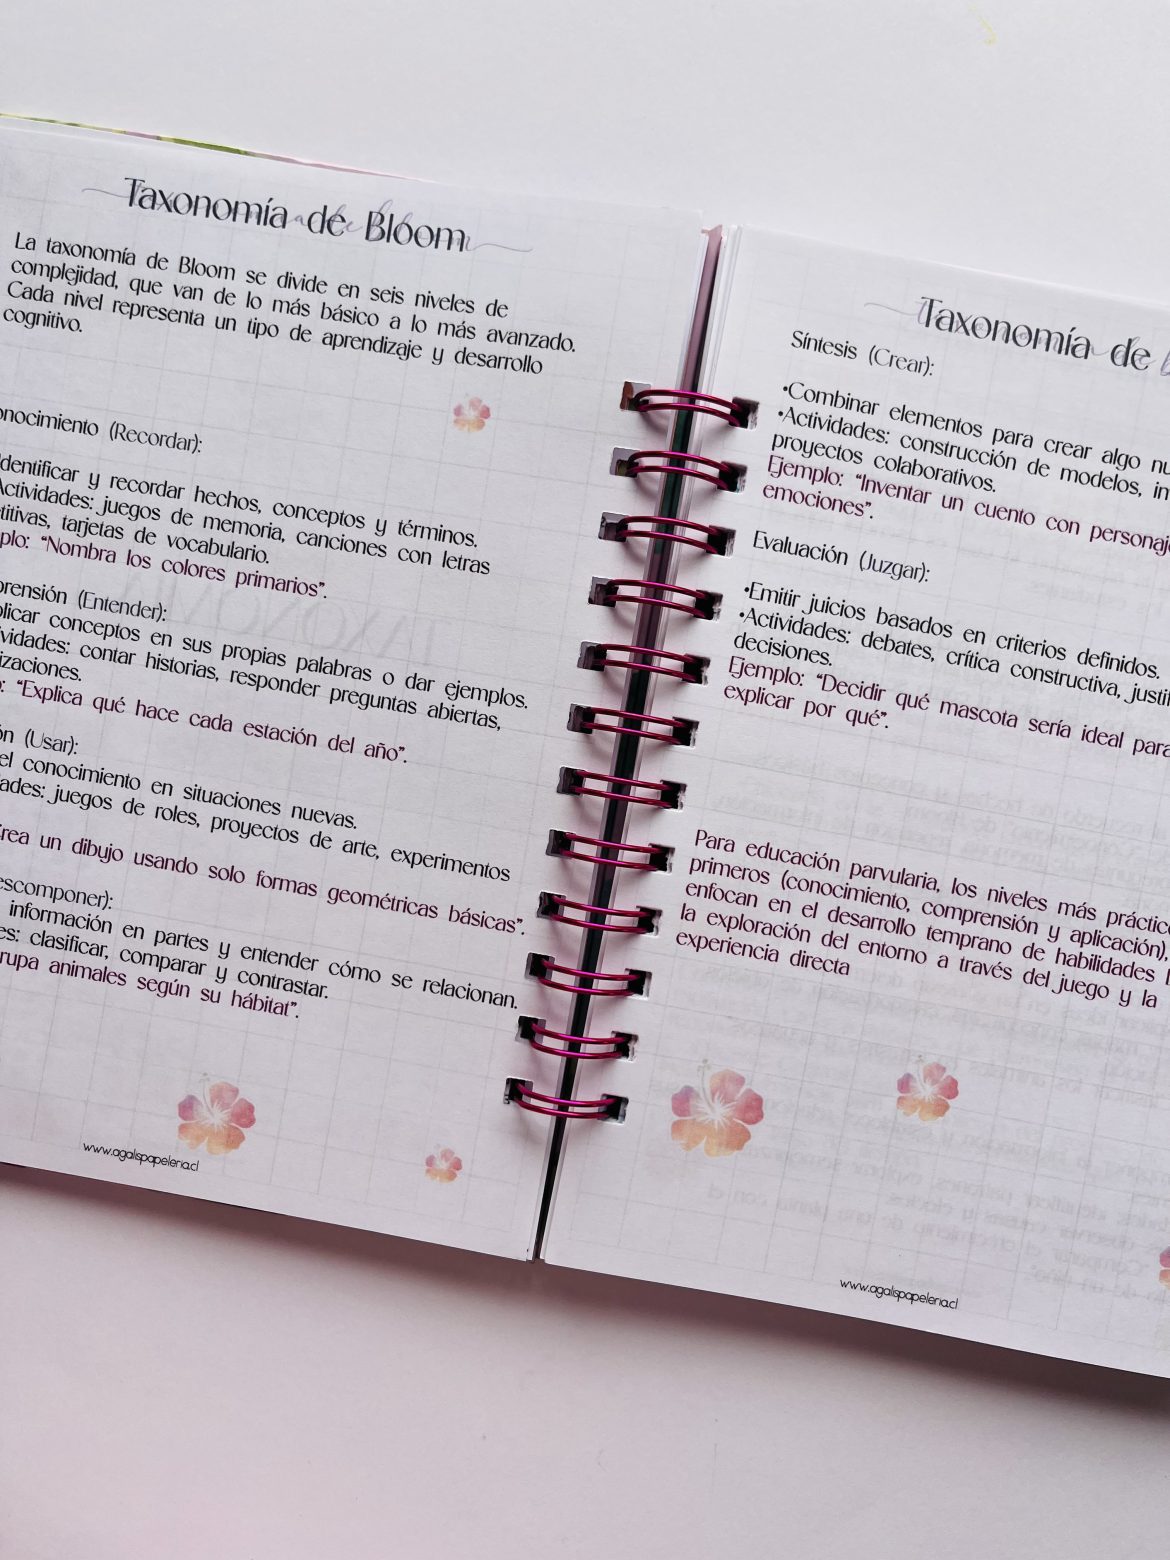 Taxonomía de Bloom
La taxonomía de Bloom se divide en seis niveles de
complejidad, que van de lo más básico a lo más avanzado.
Cada nivel representa un tipo de aprendizaje y desarrollo
cognitivo.
onocimiento (Recordar):
Identificar y recordar hechos, conceptos y términos.
Actividades: juegos de memoria, canciones con letras
titivas, tarjetas de vocabulario.
plo: “Nombra los colores primarios”.
prensión (Entender):
plicar conceptos en sus propias palabras o dar ejemplos.
vidades: contar historias, responder preguntas abiertas,
izaciones.
o: “Explica qué hace cada estación del año”.
ón (Usar):
el conocimiento en situaciones nuevas.
ades: juegos de roles, proyectos de arte, experimentos
Crea un dibujo usando solo formas geométricas básicas”.
escomponer):
información en partes y entender cómo se relacionan.
es: clasificar, comparar y contrastar.
rupa animales según su hábitat”.
www.agalispapeleria.cl
Taxonomía de
Síntesis (Crear):
•Combinar elementos para crear algo nu
•Actividades: construcción de modelos, in
proyectos colaborativos.
Ejemplo: “Inventar un cuento con personaje
emociones”.
Evaluación (Juzgar):
•Emitir juicios basados en criterios definidos.
•Actividades: debates, crítica constructiva, justif
decisiones.
Ejemplo: “Decidir qué mascota sería ideal para
explicar por qué”.
Para educación parvularia, los niveles más práctico
primeros (conocimiento, comprensión y aplicación),
enfocan en el desarrollo temprano de habilidades
la exploración del entorno a través del juego y la
experiencia directa
www.agalispapeleria.cl